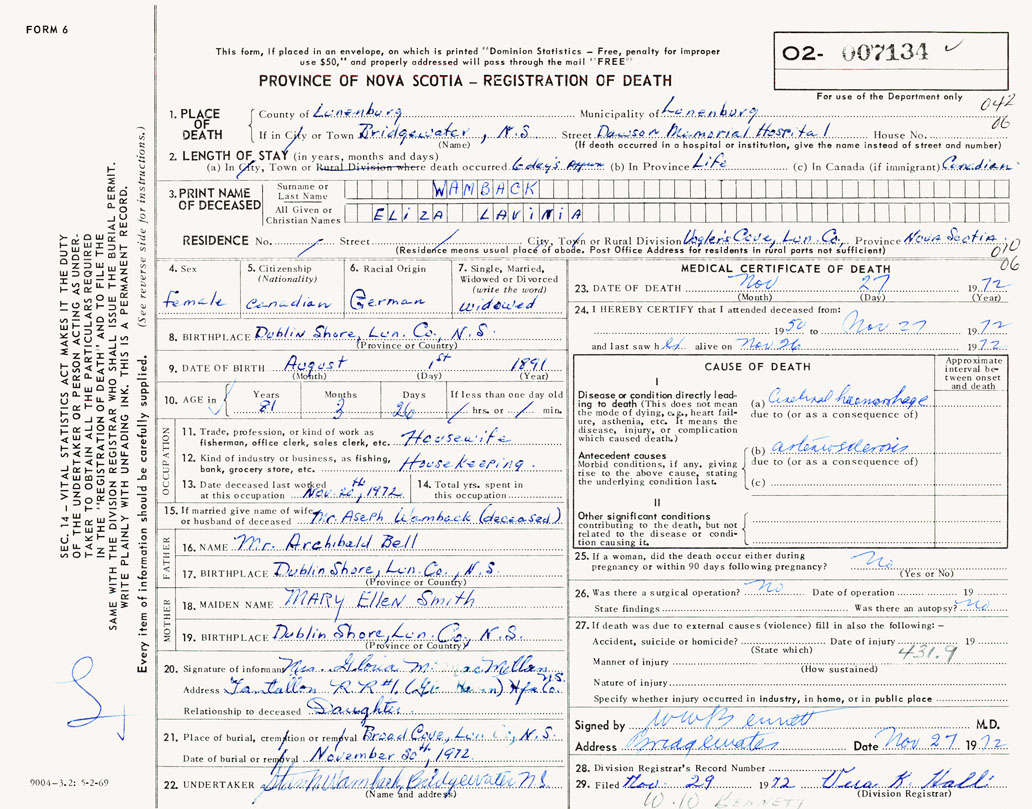 FORM 6
This form, if placed in an envelope, on which is printed "Dominion Statistics – Free, penalty for improper
use $50," and properly addressed will pass through the mail "FREE"
PROVINCE OF NOVA SCOTIA – REGISTRATION OF DEATH
O2- 007134
For use of the Department only
042
06
1. PLACE OF DEATH
County of Lunenburg Municipality of Lunenburg
If in City or Town Bridgewater, N.S. Street Dawson Memorial Hospital House No.
(Name) (If death occurred in a hospital or institution, give the name instead of street and number)
2. LENGTH OF STAY (in years, months and days)
(a) In City, Town or Rural Division where death occurred 6 day's (b) In Province Life (c) In Canada (if immigrant) Canadian
3. PRINT NAME OF DECEASED
Surname or Last Name WAMBACK
All Given or Christian Names ELIZA LAVINIA
RESIDENCE No. Street City, Town or Rural Division Vogler's Cove, Lun. Co., Province Nova Scotia
(Residence means usual place of abode. Post Office Address for residents in rural parts not sufficient)
010
06
4. Sex
female
5. Citizenship
(Nationality)
Canadian
6. Racial Origin
German
7. Single, Married,
Widowed or Divorced
(write the word)
widowed
8. BIRTHPLACE Dublin Shore, Lun. Co., N.S.
(Province or Country)
9. DATE OF BIRTH August 1st 1891
(Month) (Day) (Year)
10. AGE in
Years Months Days If less than one day old
81 3 26 hrs. or min.
OCCUPATION
11. Trade, profession, or kind of work as
fisherman, office clerk, sales clerk, etc. Housewife
12. Kind of industry or business, as fishing,
bank, grocery store, etc. Housekeeping.
13. Date deceased last worked
at this occupation Nov. 20th, 1972
14. Total yrs. spent in
this occupation
15. If married give name of wife
or husband of deceased Mr. Aseph Wamback (deceased)
FATHER
16. NAME Mr. Archibald Bell
17. BIRTHPLACE Dublin Shore, Lun. Co., N.S.
(Province or Country)
MOTHER
18. MAIDEN NAME MARY Ellen Smith
19. BIRTHPLACE Dublin Shore, Lun. Co., N.S.
(Province or Country)
20. Signature of informant Mrs. Gloria
Address Tantallon R.R #1. Hfx Co. N.S.
Relationship to deceased Daughter
21. Place of burial, cremation or removal Broad Cove, Lun Co., N.S.
Date of burial or removal November 30th, 1972
22. UNDERTAKER Wamback, Bridgewater N.S.
(Name and address)
MEDICAL CERTIFICATE OF DEATH
23. DATE OF DEATH Nov 27 1972
(Month) (Day) (Year)
24. I HEREBY CERTIFY that I attended deceased from:
1950 to Nov 27 1972
and last saw her alive on Nov 26 1972
CAUSE OF DEATH
Approximate interval between onset and death
I
Disease or condition directly leading to death (This does not mean
the mode of dying, e.g., heart failure, asthenia, etc. It means the
disease, injury, or complication
which caused death.)
(a) Cerebral haemorrhage
due to (or as a consequence of)
Antecedent causes
Morbid conditions, if any, giving
rise to the above cause, stating
the underlying condition last.
(b) arteriosclerosis
due to (or as a consequence of)
(c)
II
Other significant conditions
contributing to the death, but not
related to the disease or condition causing it.
25. If a woman, did the death occur either during
pregnancy or within 90 days following pregnancy? No
(Yes or No)
26. Was there a surgical operation? no Date of operation 19
State findings Was there an autopsy? no
27. If death was due to external causes (violence) fill in also the following: –
Accident, suicide or homicide? Date of injury 19
(State which)
431.9
Manner of injury
(How sustained)
Nature of injury
Specify whether injury occurred in industry, in home, or in public place
Signed by W W Bennett M.D.
Address Bridgewater Date Nov 27 1972
28. Division Registrar's Record No.
29. Filed Nov 29 1972 Vera K. Halli
(Division Registrar)
W. W. BENNETT
SEC. 14 – VITAL STATISTICS ACT MAKES IT THE DUTY
OF THE UNDERTAKER OR PERSON ACTING AS UNDERTAKER TO OBTAIN ALL THE PARTICULARS REQUIRED
IN THE "REGISTRATION OF DEATH" AND TO FILE THE
SAME WITH THE DIVISION REGISTRAR WHO SHALL ISSUE THE BURIAL PERMIT.
WRITE PLAINLY WITH UNFADING INK. THIS IS A PERMANENT RECORD.
Every item of information should be carefully supplied. (See reverse side for instructions.)
9004-3.2: 5-2-69